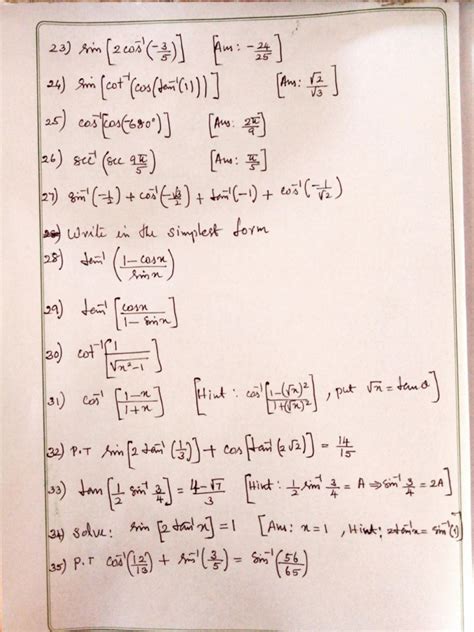 23) sin [2cos⁻¹(-3/5)] [Ans: -24/25]
24) sin [cot⁻¹(cos(tan⁻¹(1)))] [Ans: √2/√3]
25) cos⁻¹[cos(-680°)] [Ans: 2π/9]
26) sec⁻¹(sec 9π/5) [Ans: π/5]
27) sin⁻¹(-1/2) + cos⁻¹(-√3/2) + tan⁻¹(-1) + cos⁻¹(-1/√2)
Write in the simplest form
28) tan⁻¹((1-cosx)/sinx)
29) tan⁻¹[cosx/(1-sinx)]
30) cot⁻¹[1/√(x²-1)]
31) cos⁻¹[(1-x)/(1+x)] [Hint: cos⁻¹[(1-(√x)²)/(1+(√x)²)], put √x = tanθ]
32) P.T sin[2tan⁻¹(1/3)] + cos[tan⁻¹(2√2)] = 14/15
33) tan[1/2 sin⁻¹ 3/4] = (4-√7)/3 [Hint: 1/2 sin⁻¹ 3/4 = A ⇒ sin⁻¹ 3/4 = 2A]
34) solve: sin [2tan⁻¹x] = 1 [Ans: x=1, Hint: 2tan⁻¹x = sin⁻¹(1)]
35) P.T cos⁻¹(12/13) + sin⁻¹(3/5) = sin⁻¹(56/65)